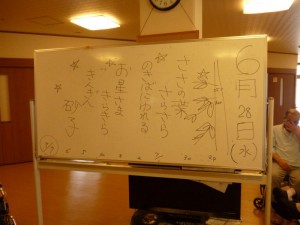 6月28日(水)
ささの葉
さらさら
のきばにゆれる
お星さま
きらきら
きんぎん
砂子